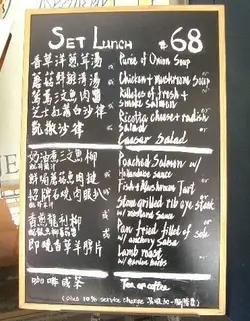 SET LUNCH $68
香草洋葱茸湯 Purée of Onion Soup
蘑菇鮮雞清湯 or Chicken + mushroom Soup
or
Rillettes of fresh +
smoke Salmon
芝士紅蘿白沙律 or Ricotta cheese + radish
Salad or
凱撒沙律 Caesar Salad
奶油煮三文魚柳 Poached Salmon w/
Hollandaise sauce or
鮮蘑菇魚肉撻 Fish + Mushroom Tart
or
招牌石燒肉眼扒 Stone grilled rib eye steak
w/ mustard sauce or
香煎龍利柳 Pan fried fillet of sole
w/ anchovy salsa or
即燒香草羊髀片 Lamb roast
w/ garden herbs
咖啡或茶 Tea or coffee
(plus 10% service charge 另設加一服務費)